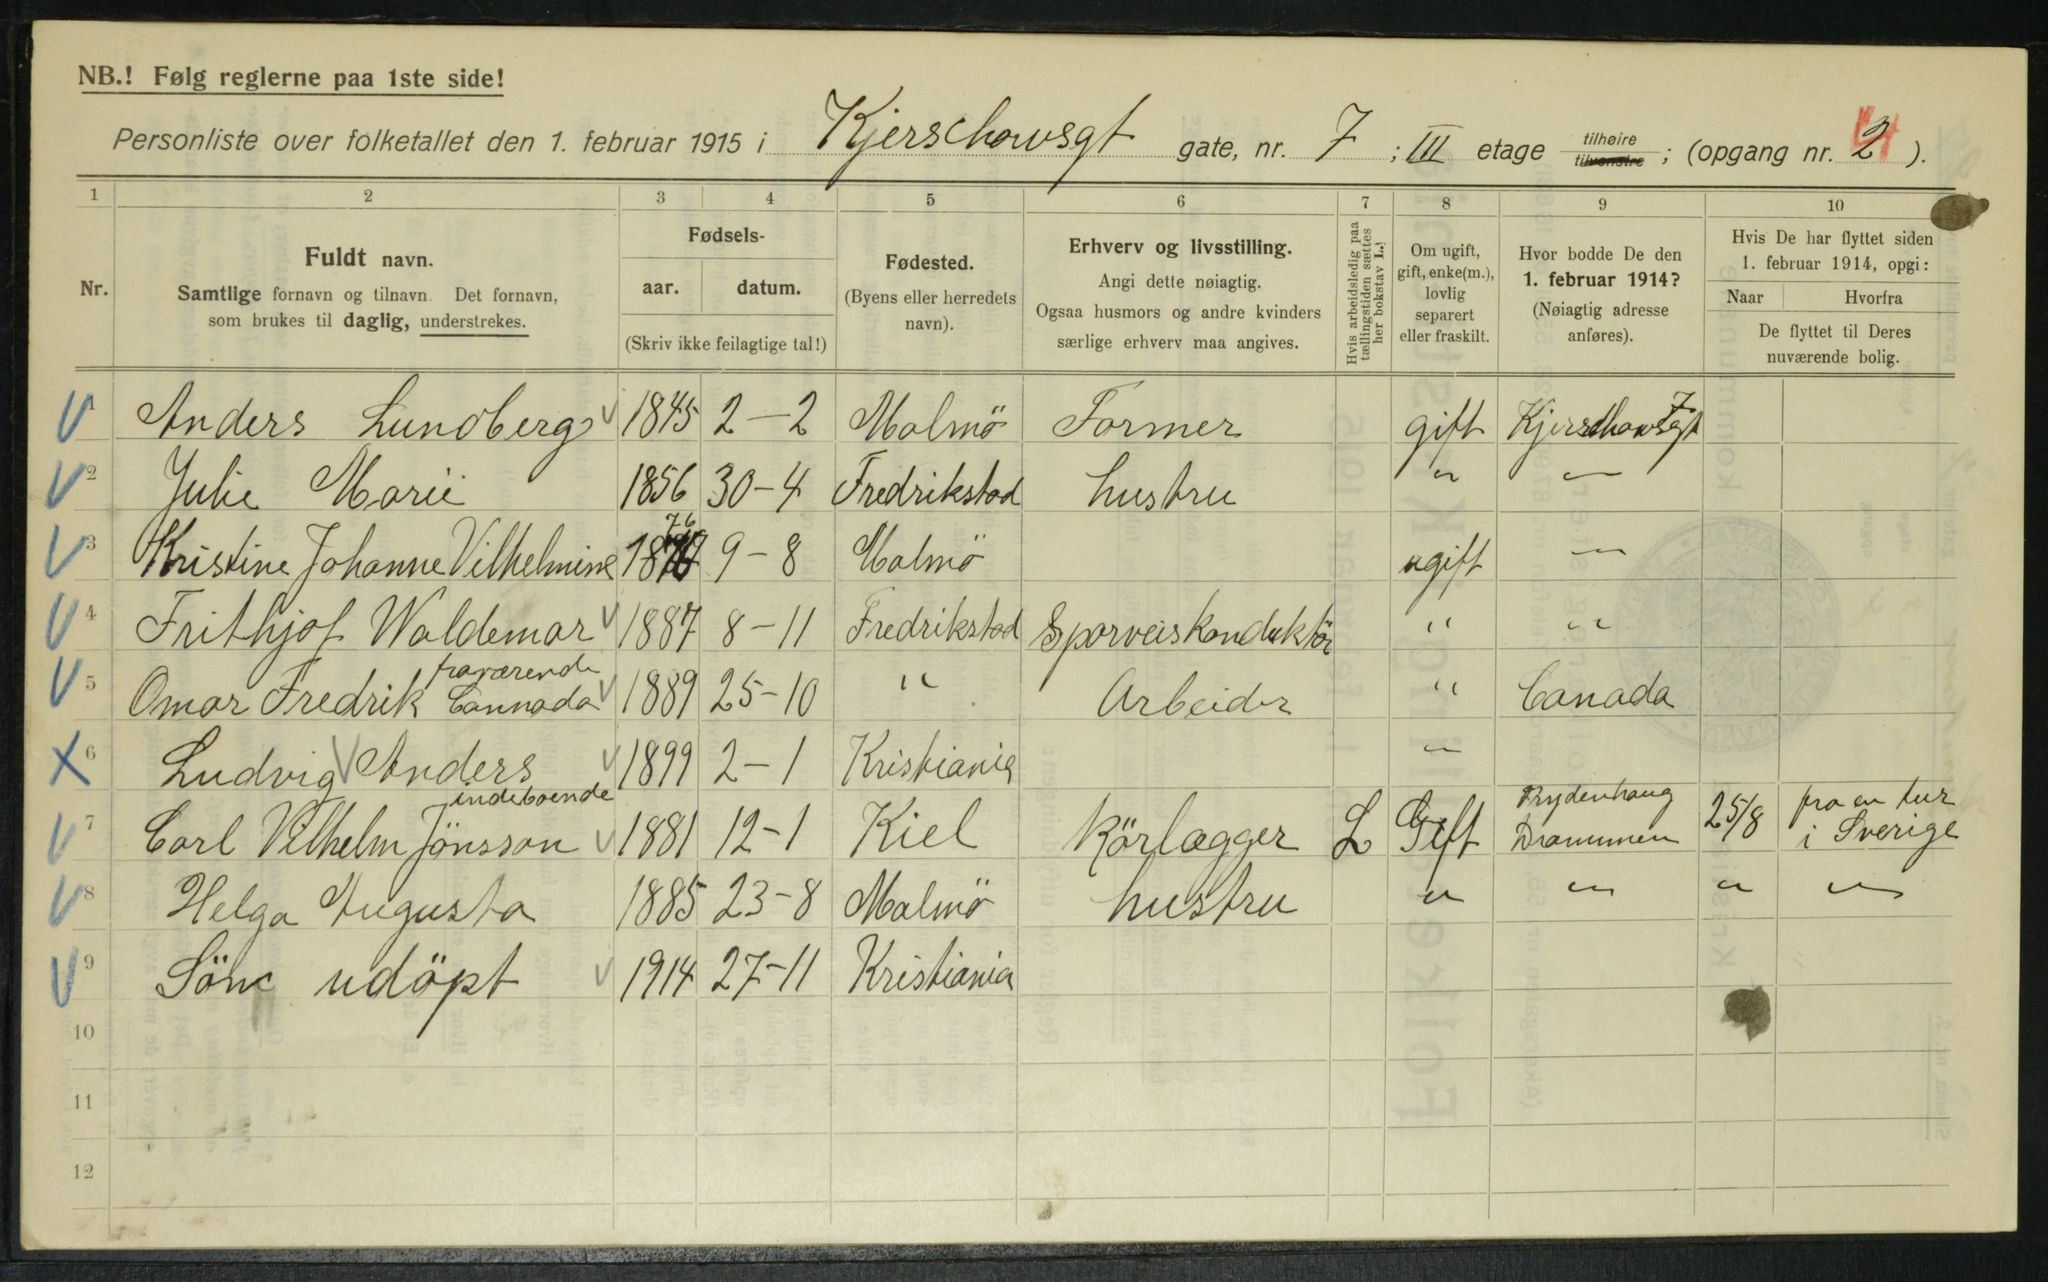 NB.! Følg reglerne paa 1ste side!
Personliste over folketallet den 1. februar 1915 i Kjerschowsgt gate, nr. 7 ; III etage tilhøire tilvenstre ; (opgang nr. 2 4 ).
1 2 3 4 5 6 7 8 9 10
Nr.
Fuldt navn.
Samtlige fornavn og tilnavn. Det fornavn,
som brukes til daglig, understrekes.
Fødsels-
aar. datum.
(Skriv ikke feilagtige tal!)
Fødested.
(Byens eller herredets
navn).
Erhverv og livsstilling.
Angi dette nøiagtig.
Ogsaa husmors og andre kvinders
særlige erhverv maa angives.
Hvis arbeidsledig paa
tællingstiden sættes
her bokstav L.!
Om ugift,
gift, enke(m.),
lovlig
separert
eller fraskilt.
Hvor bodde De den
1. februar 1914?
(Nøiagtig adresse
anføres).
Hvis De har flyttet siden
1. februar 1914, opgi:
Naar Hvorfra
De flyttet til Deres
nuværende bolig.
Anders Lundberg 1845 2-2 Malmö Former gift Kjerschowsgt 7
2 Julie Marie 1856 30-4 Fredrikstad hustru " "
3 Kristine Johanne Vilhelmine 1876 9-8 Malmö ugift "
4 Frithjof Waldemar 1887 8-11 Fredrikstad Sporveiskonduktör " "
fraværende
5 Omar Fredrik Cannada 1889 25-10 " Arbeider " Canada
6 Ludvig Anders 1899 2-1 Kristiania "
indeboende
7 Carl Vilhelm Jönsson 1881 12-1 Kiel Rörlægger L Gift Drammen 25/8 fra en tur i Sverige
8 Helga Augusta 1885 23-8 Malmö hustru " " " "
9 Sön udöpt 1914 27-11 Kristiania
10
11
12